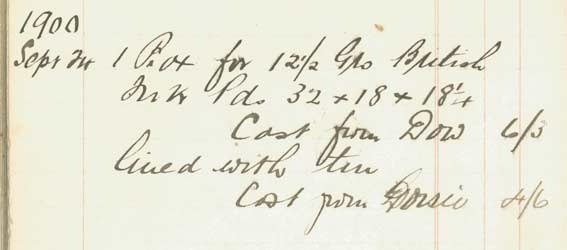 1900
Sept 24 1 Box for 12 1/2 Gro British
Ink Pds 32 x 18 x 18 1/4
Cost from Dow 6/3
lined with tin
Cost from 4/6